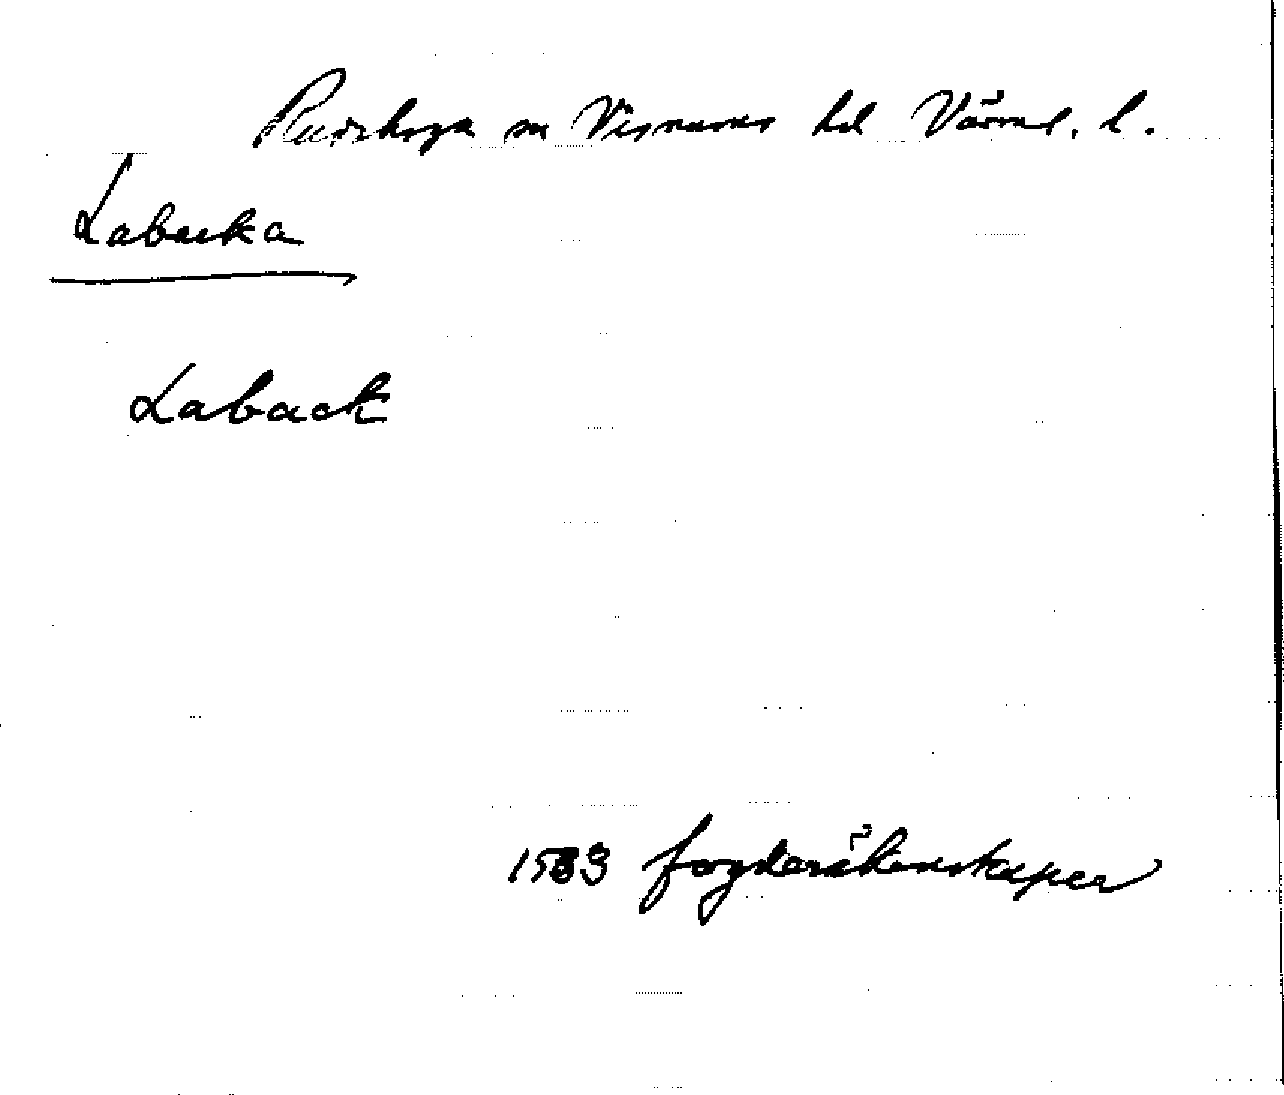 Rudskoga sn Visnums hd Värml. l.
Labacka
Laback
1533 fogderäkenskaper